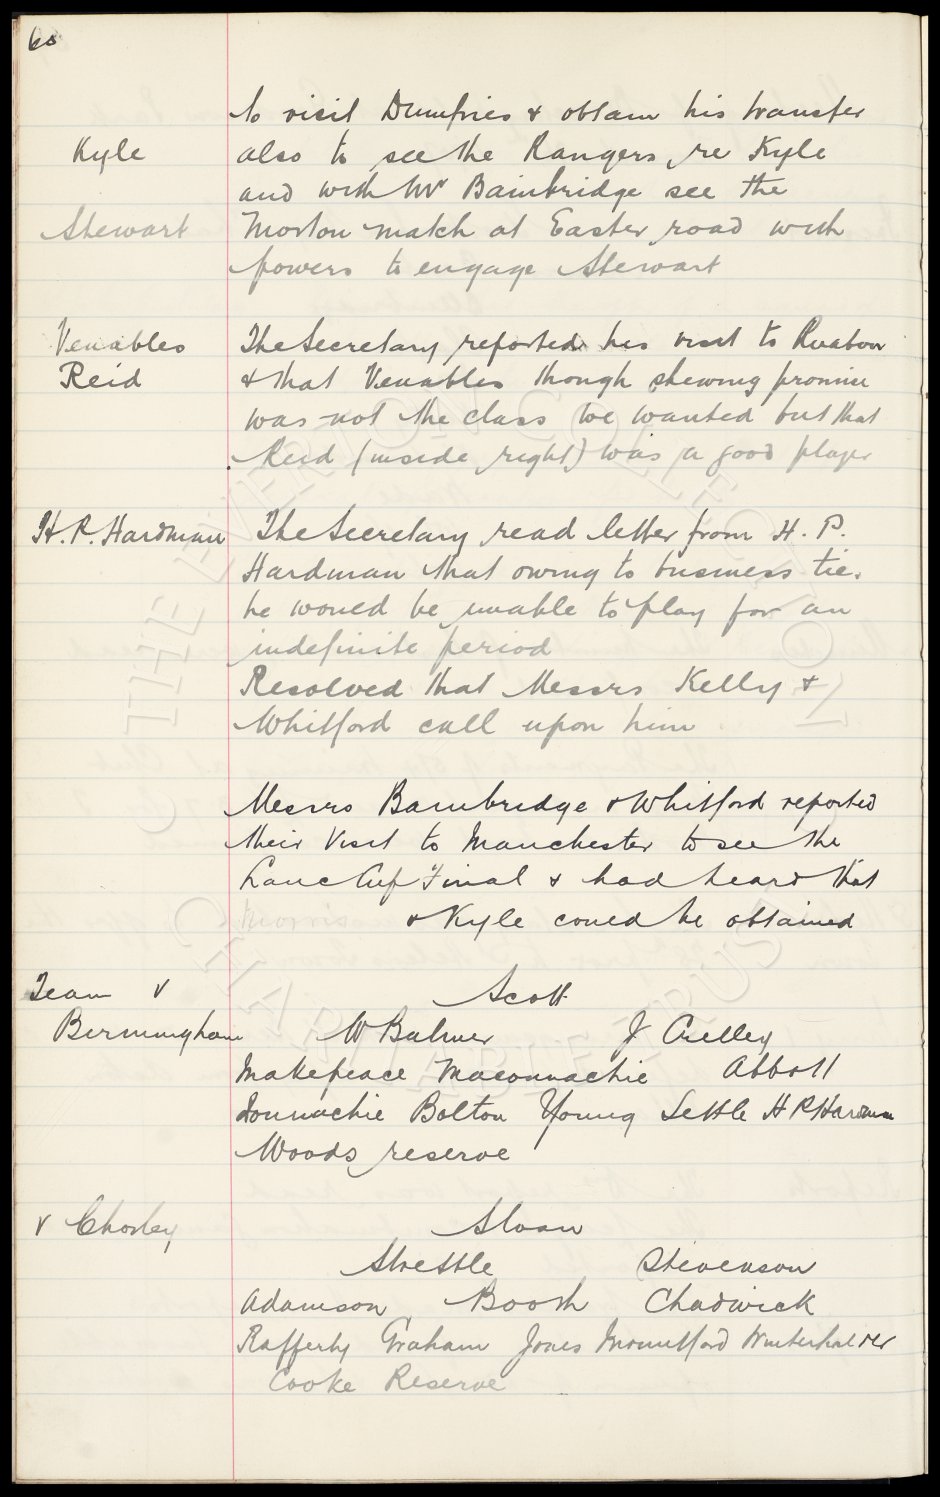 60
to visit Dumfries & obtain his transfer
Kyle also to see the Rangers re Kyle
and with Mr Bainbridge see the
Stewart Morton match at Easter road with
powers to engage Stewart
Venables The Secretary reported his visit to Ruabon
Reid & that Venables though shewing promise
was not the class we wanted but that
Reid (inside right) was a good player
H. P. Hardman The Secretary read letter from H. P.
Hardman that owing to business tie.
he would be unable to play for an
indefinite period
Resolved that Messrs Kelly &
Whitford call upon him
Messrs Bainbridge & Whitford reported
their visit to Manchester to see the
Lanc Cup Final & had heard that
& Kyle could be obtained
Team v Scott
Birmingham W Balmer J Crelley
Makepeace Maconnachie Abbott
Donnachie Bolton Young Settle H P Hardman
Woods reserve
v Chorley Sloan
Strettle Stevenson
Adamson Booth Chadwick
Rafferty Graham Jones Mountford Winterhalder
Cooke Reserve
THE EVERTON COLLECTION
CHARITABLE TRUST